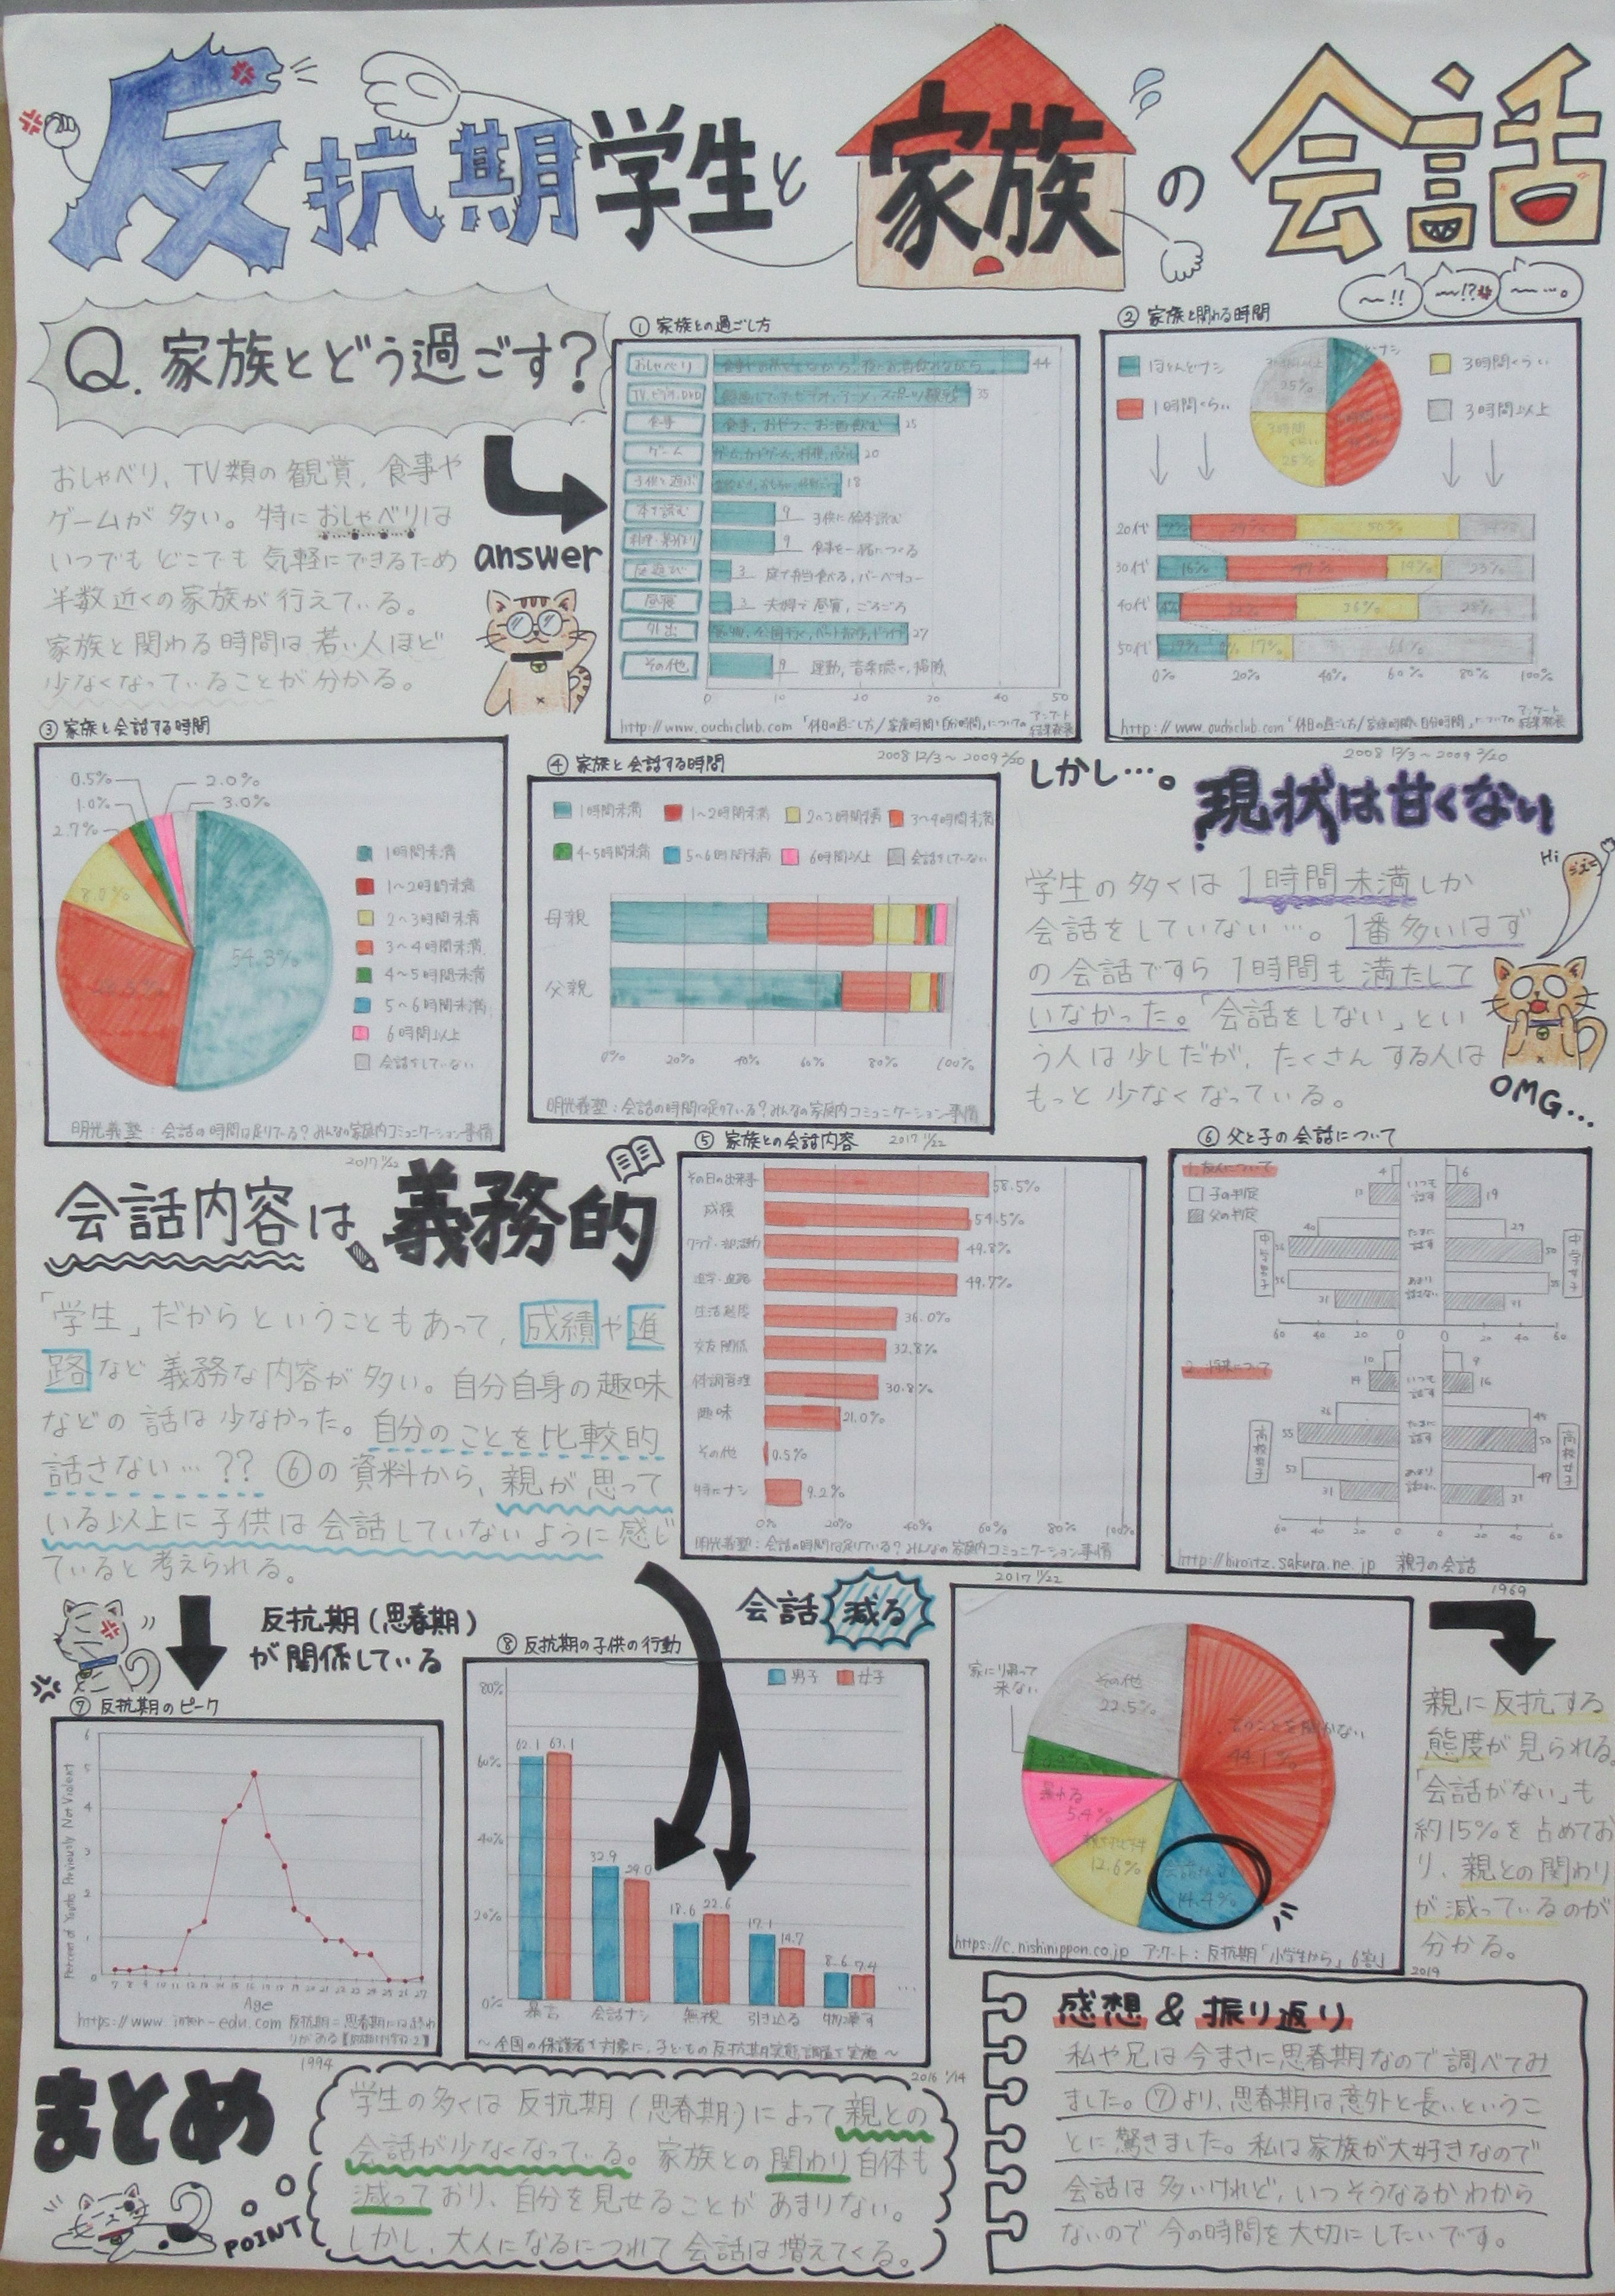 反抗期学生と家族の会話
Q. 家族とどう過ごす?
おしゃべり、TV類の観賞、食事や
ゲームが多い。特におしゃべりは
いつでもどこでも気軽にできるため
半数近くの家族が行えている。
家族と関わる時間は若い人ほど
少なくなっていることが分かる。
answer
① 家族との過ごし方
おしゃべり 44
TV,ビデオ,DVD 35
食事 食事、おやつ、お酒飲む 25
ゲーム 20
子供と遊ぶ 18
本で読む 9 子供に絵本読む
9 食事を一緒につくる
庭遊び 3 庭で弁当食べる、バーベキュー
昼寝 3 夫婦で昼寝、ごろごろ
外出 27
その他 9 運動、音楽聴く、掃除
0 10 20 30 40 50
http://www.ouchiclub.com 「休日の過ごし方/家族時間と自分時間」についてのアンケート結果発表
2008 12/3〜2009 2/20
② 家族と関わる時間
ほとんどナシ
1時間くらい
3時間くらい
3時間以上
20代
30代 16% 19% 23%
40代 36%
50代 17%
0% 20% 40% 60% 80% 100%
http://www.ouchiclub.com 「休日の過ごし方/家族時間と自分時間」についてのアンケート結果発表
2008 12/3〜2009 2/20
③ 家族と会話する時間
0.5%
1.0%
2.7%
2.0%
3.0%
8.0%
54.3%
1時間未満
1〜2時間未満
2〜3時間未満
3〜4時間未満
4〜5時間未満
5〜6時間未満
6時間以上
会話をしていない
明光義塾:会話の時間は足りている?みんなの家庭内コミュニケーション事情
2017 11/22
④ 家族と会話する時間
1時間未満 1〜2時間未満 2〜3時間未満 3〜4時間未満
4〜5時間未満 5〜6時間未満 6時間以上 会話をしていない
母親
父親
0% 20% 40% 60% 80% 100%
明光義塾:会話の時間は足りている?みんなの家庭内コミュニケーション事情
2017 11/22
しかし…。
現状は甘くない
学生の多くは1時間未満しか
会話をしていない…。1番多いはず
の会話ですら1時間も満たして
いなかった。「会話をしない」とい
う人は少しだが、たくさんする人は
もっと少なくなっている。
Hi
OMG...
会話内容は義務的
「学生」だからということもあって、成績や進
路など義務な内容が多い。自分自身の趣味
などの話は少なかった。自分のことを比較的
話さない…?? ⑥の資料から、親が思って
いる以上に子供は会話していないように感じ
ていると考えられる。
⑤ 家族との会話内容
その日の出来事 58.5%
成績 54.5%
クラブ・部活動 49.8%
進学・進路 49.7%
生活態度 36.0%
交友関係 32.8%
体調管理 30.8%
趣味 21.0%
その他 0.5%
特にナシ 9.2%
0% 20% 40% 60% 80% 100%
明光義塾:会話の時間は足りている?みんなの家庭内コミュニケーション事情
2017 11/22
⑥ 父と子の会話について
1. 友人について
子の判定
父の判定
いつも話す
たまに話す
あまり話さない
中学男子
中学女子
60 40 20 0 0 20 40 60
2. 将来について
いつも話す
たまに話す
あまり話さない
高校男子
高校女子
60 40 20 0 0 20 40 60
http://hiroitz.sakura.ne.jp 親子の会話
1969
反抗期(思春期)
が関係している
⑦ 反抗期のピーク
Percent of Youths Previously Not Violent
Age
https://www.inter-edu.com
1994
⑧ 反抗期の子供の行動
男子 女子
80%
60%
40%
20%
0%
62.1 63.1
32.9 29.0
18.6 22.6
17.1 14.7
8.6 7.4
暴言 会話ナシ 無視 引き込る 物壊す …
〜全国の保護者を対象に、子どもの反抗期実態調査を実施〜
2016 1/14
会話減る
家に帰って来ない
その他 22.5%
いうことを聞かない 44.1%
暴れる 5.4%
12.6%
14.4%
https://c.nishinippon.co.jp アンケート:反抗期「小学生から」6割
2019
親に反抗する
態度が見られる。
「会話がない」も
約15%を占めてお
り、親との関わり
が減っているのが
分かる。
まとめ
POINT
学生の多くは反抗期(思春期)によって親との
会話が少なくなっている。家族との関わり自体も
減っており、自分を見せることがあまりない。
しかし、大人になるにつれて会話は増えてくる。
感想&振り返り
私や兄は今まさに思春期なので調べてみ
ました。⑦より、思春期は意外と長いというこ
とに驚きました。私は家族が大好きなので
会話は多いけれど、いつそうなるかわから
ないので今の時間を大切にしたいです。